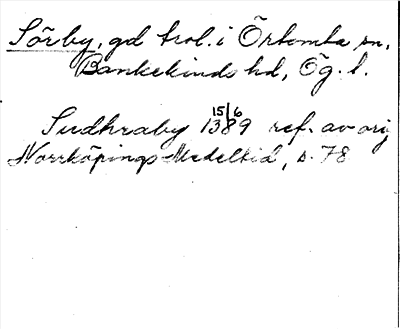 Sörby, gd trol. i Örtomta sn,
Bankekinds hd, Ög. l.
Sudhraby 15/6 1389 ref. av orig
Norrköpings Medeltid, s. 78